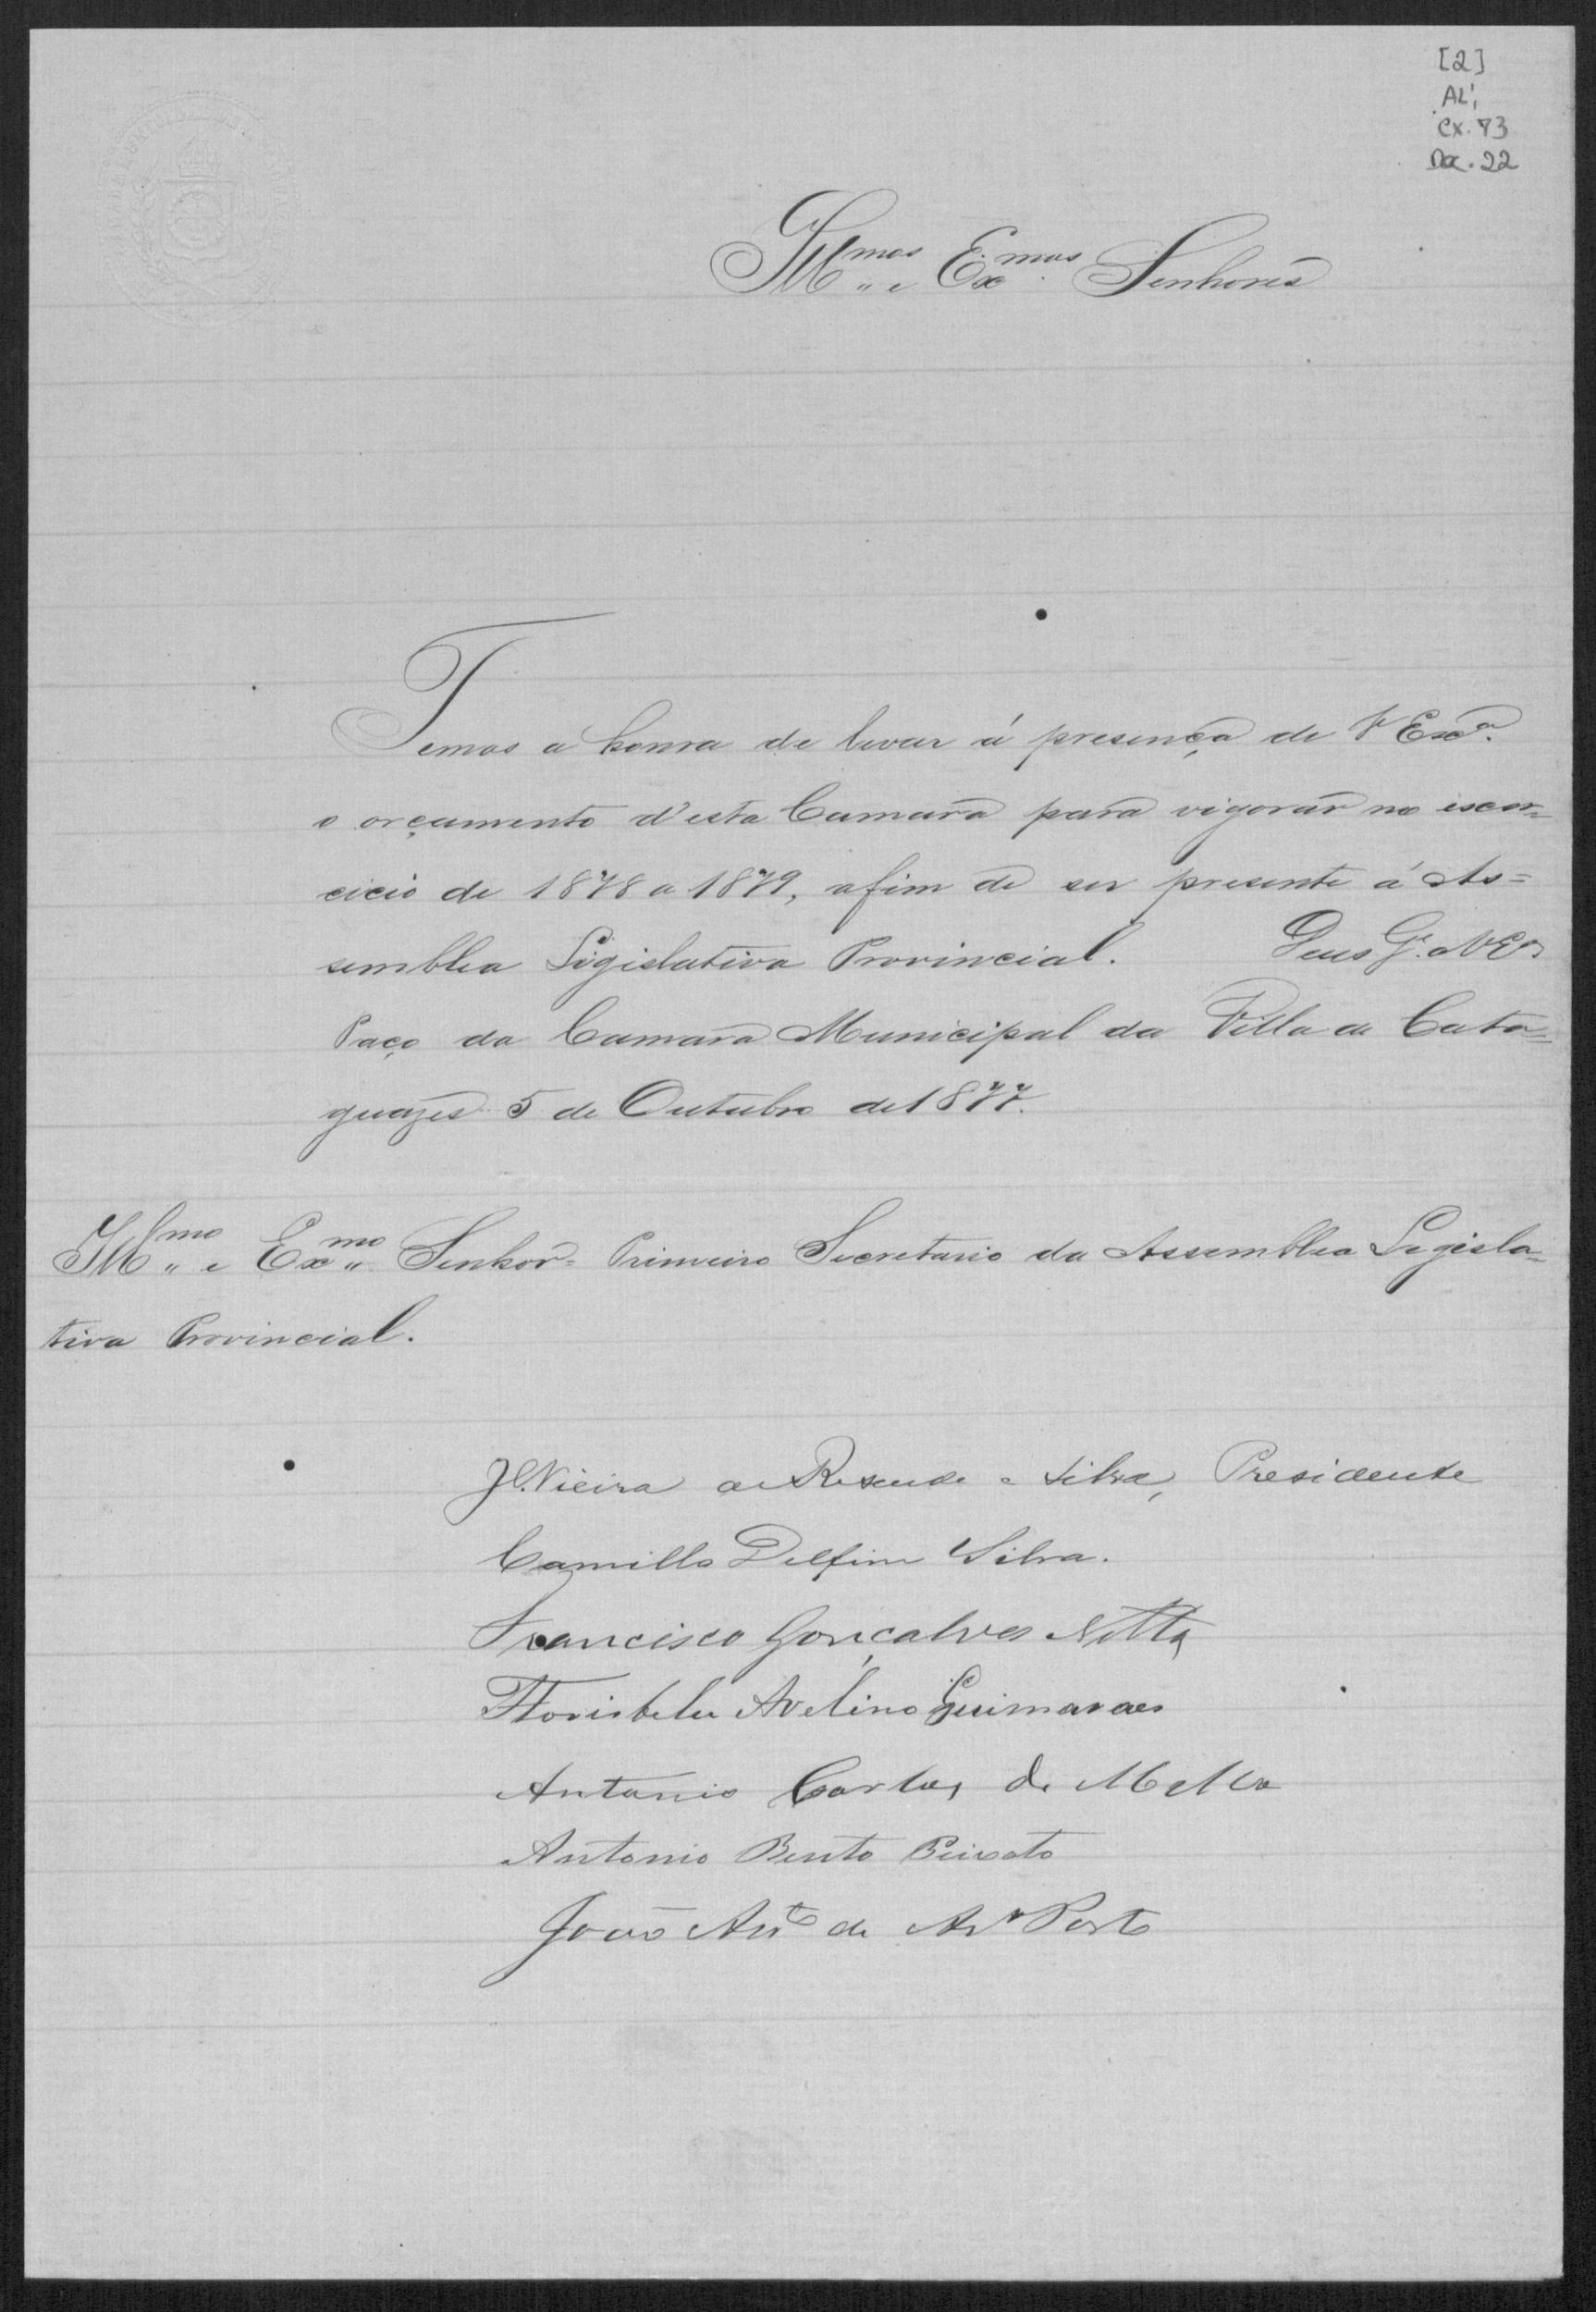 [2]
AL¹,
Cx. 73
Doc. 22
Ill.mos e Ex.mos Senhores
Temos a honra de levar á presença de V Exa.
o orçamento d'esta Camara para vigorar no exer=
cicio de 1878 a 1879, afim de ser presente á As=
semblea Legislativa Provincial. Deus G.e a V Ex.
Paço da Camara Municipal da Villa de Cata=
guazes 5 de Outubro de 1877.
Ill.mo e Ex.mo Senhor Primeiro Secretario da Assemblea Legisla=
tiva Provincial.
Vieira de Resende e Silva, Presidente
Camillo Delfim Silva.
Francisco Gonçalves Netto
Floris belu Avelino Guimaraes
Antonio Carlos de Mello
Antonio Bento Peixoto
João Anto de Ar.o Porto